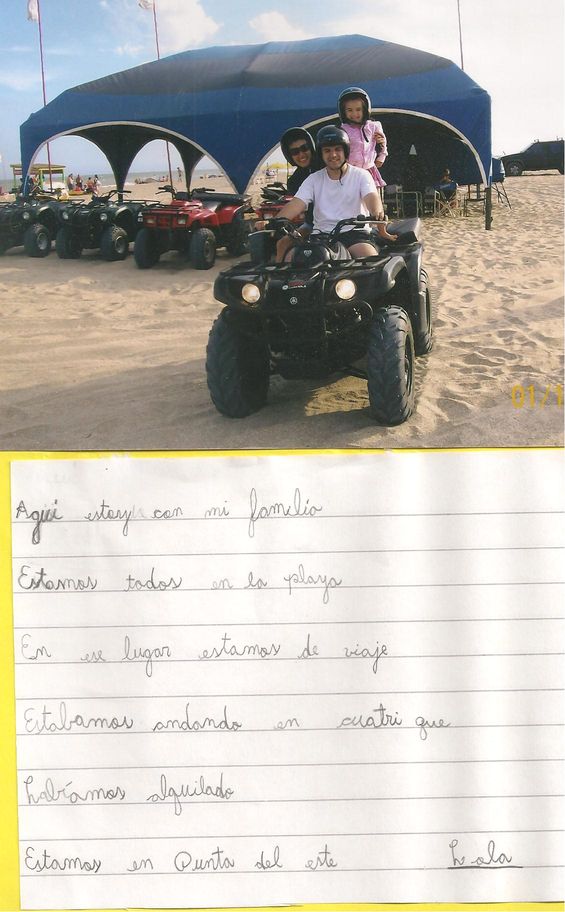 01/1
Aquí estoy con mi familia
Estamos todos en la playa
En ese lugar estamos de viaje
Estabamos andando en cuatri que
habíamos alquilado
Estamos en Punta del este Lola